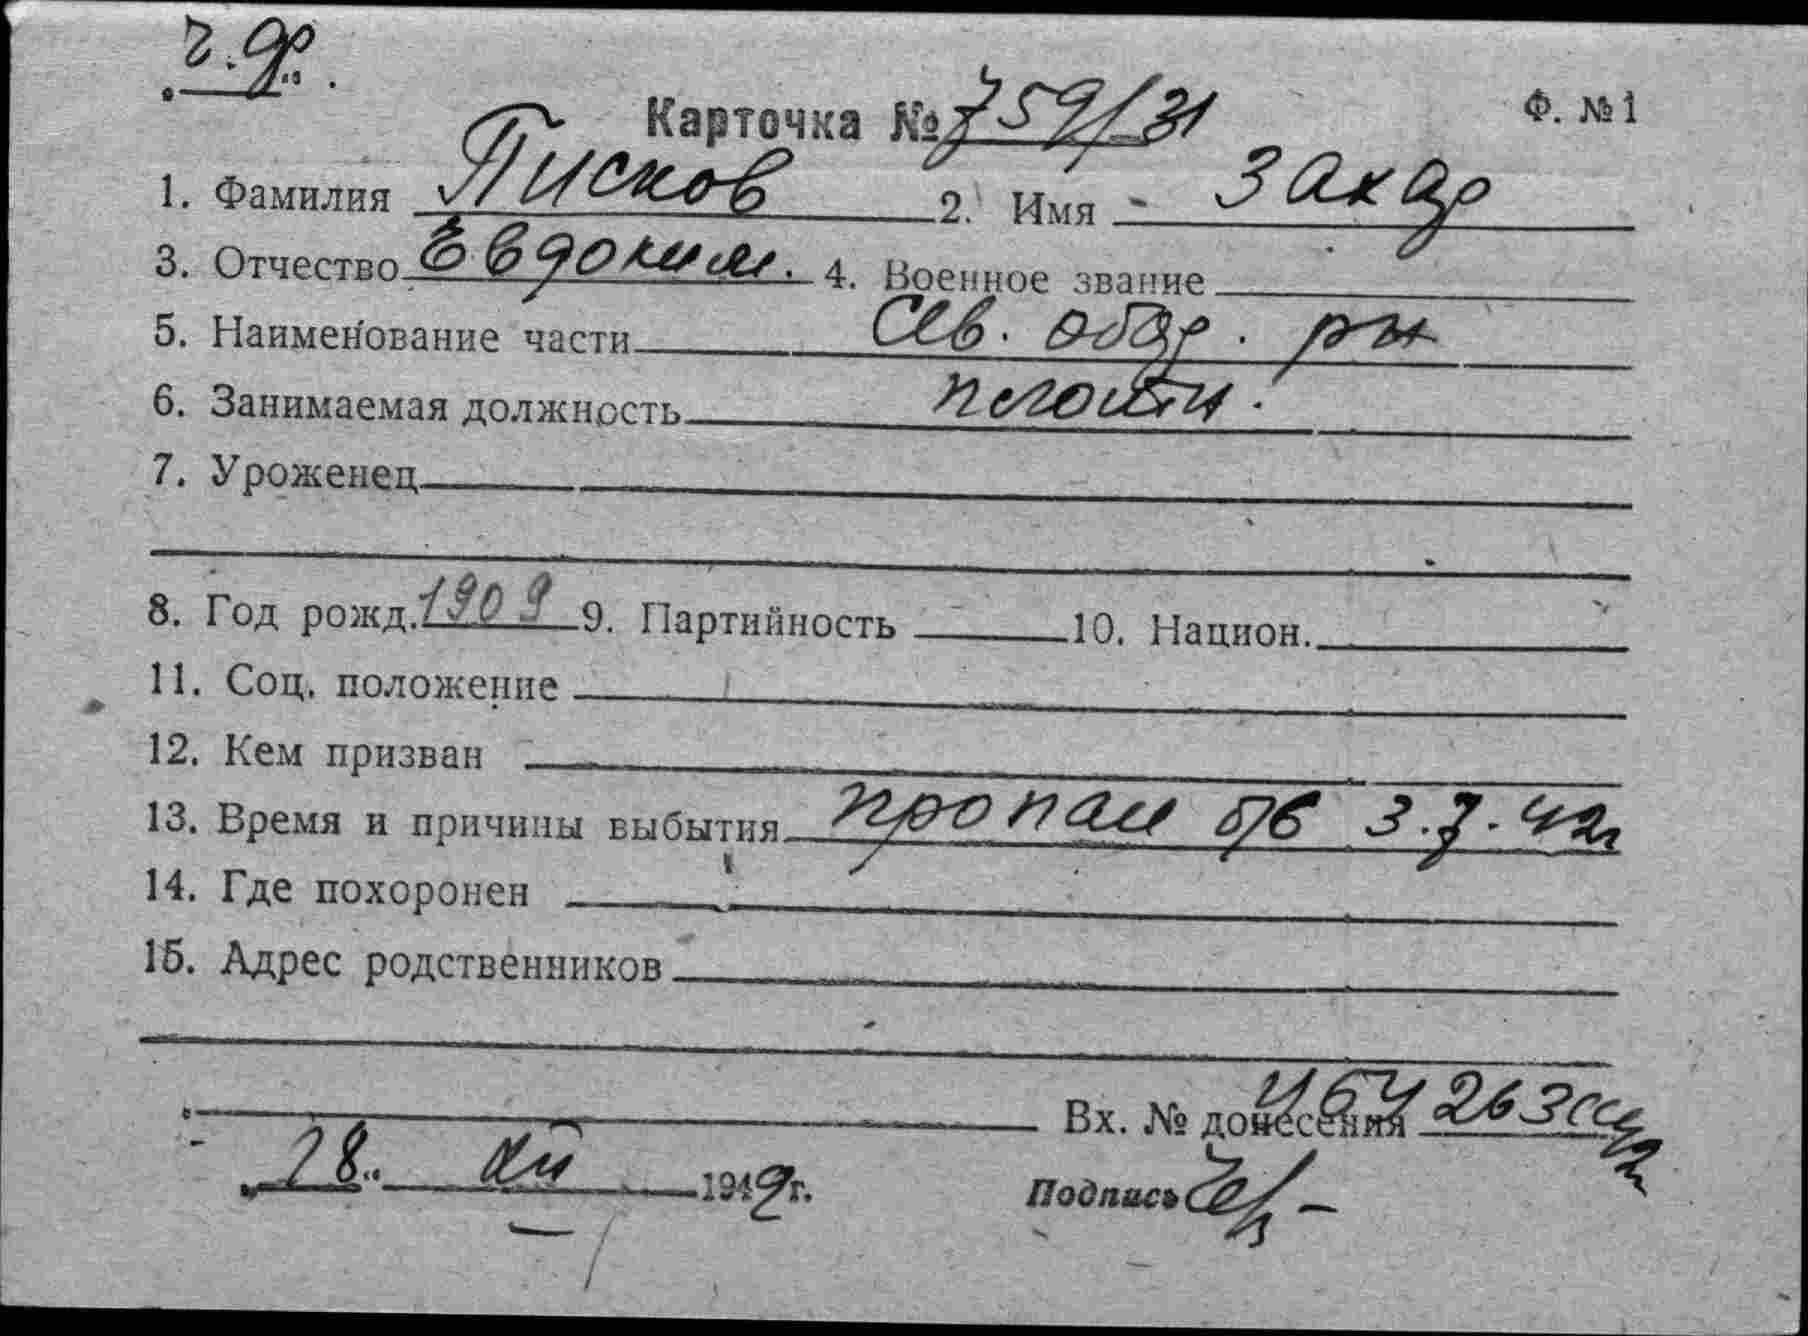 ч.ф.
Карточка № 759/31 Ф. № 1
1. Фамилия Писков 2. Имя Захар
3. Отчество Евдоким. 4. Военное звание
5. Наименование части Сев. обор. р-н
6. Занимаемая должность
7. Уроженец
8. Год рожд. 1909 9. Партийность 10. Национ.
11. Соц. положение
12. Кем призван
13. Время и причины выбытия пропал б/в 3.7.42г
14. Где похоронен
15. Адрес родственников
Вх. № донесения 263сс
28 1949 г. Подпись